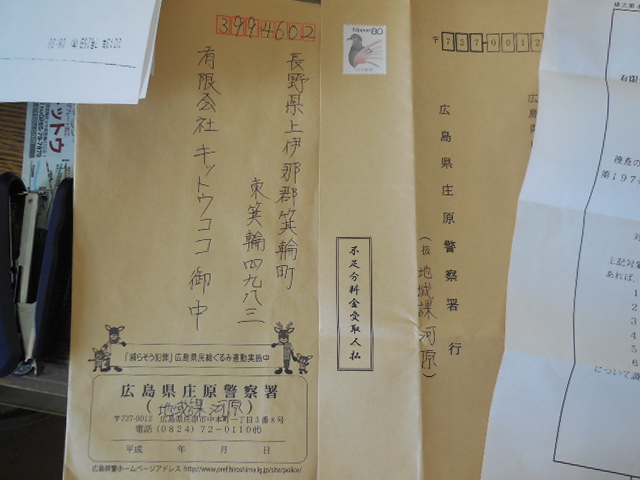 3994602
長野県上伊那郡箕輪町
東箕輪四九八三
有限会社キットウココ御中
「減らそう犯罪」広島県民総ぐるみ運動実施中
広島県庄原警察署
(地域課 河原)
〒727-0013 広島県庄原市中本町一丁目3番8号
電話 (0824) 72-0110㈹
平成 年 月 日
広島県警ホームページアドレス http://www.pref.hiroshima.lg.jp/site/police/
Nippon 80
不足分料金受取人払
〒7270012
広島県庄原警察署 行
(扱 地域課 河原)
広島
ットウ
有限
捜査の
第197
対
上記対
あれば、
1
2
3
4
5
6
について